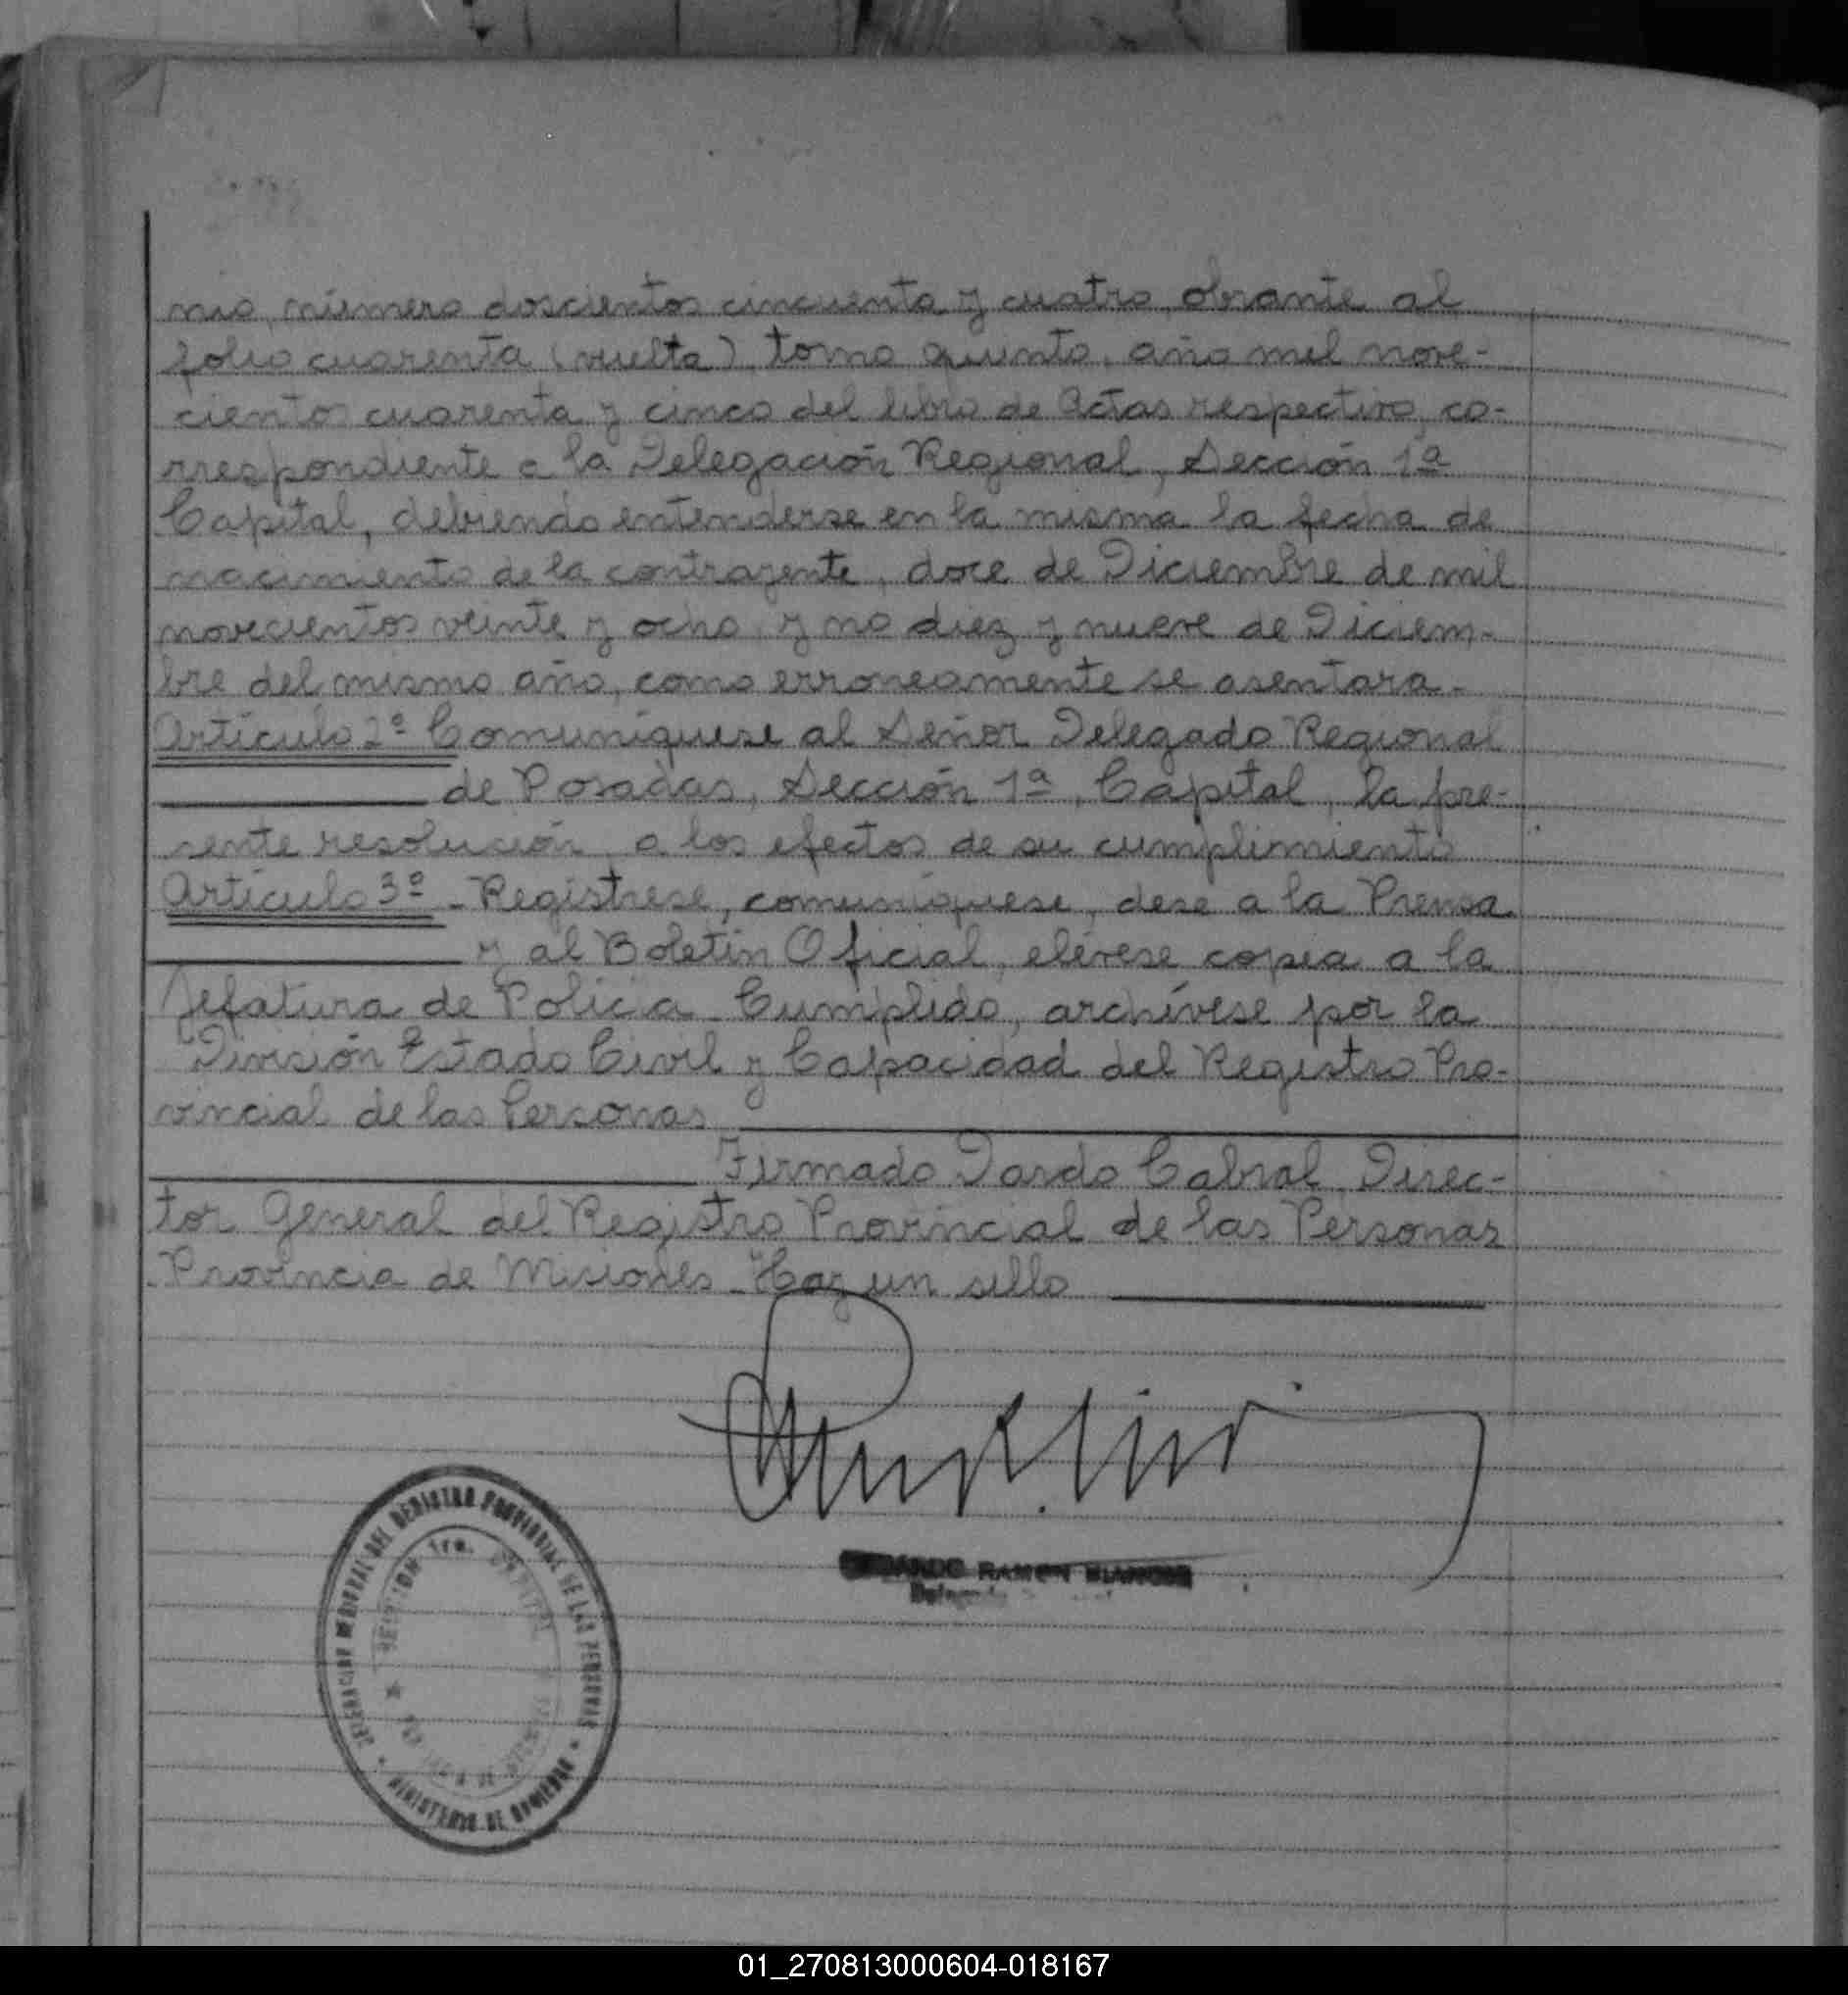 nio, número doscientos cincuenta y cuatro, obrante al
folio cuarenta (vuelta) tomo quinto, año mil nove-
cientos cuarenta y cinco del libro de Actas respectivo, co-
rrespondiente a la Delegación Regional, Sección 1ª
Capital, debiendo entenderse en la misma la fecha de
nacimiento de la contrayente, doce de Diciembre de mil
novecientos veinte y ocho y no diez y nueve de Diciem-
bre del mismo año, como erroneamente se asentara.-
Artículo 2º Comuníquese al Señor Delegado Regional
de Posadas, Sección 1ª, Capital, la pre-
sente resolución, a los efectos de su cumplimiento
Artículo 3º - Regístrese, comuníquese, dese a la Prensa
y al Boletín Oficial, elévese copia a la
Jefatura de Policia - Cumplido, archívese por la
División Estado Civil y Capacidad del Registro Pro-
vincial de las Personas
Firmado Dardo Cabral Direc-
tor General del Registro Provincial de las Personas
Provincia de Misiones - Hay un sello
RAMON
DELEGACION REGIONAL DEL REGISTRO PROVINCIAL DE LAS PERSONAS
SECCION 1ra. CAPITAL
MINISTERIO DE GOBIERNO
01_270813000604-018167